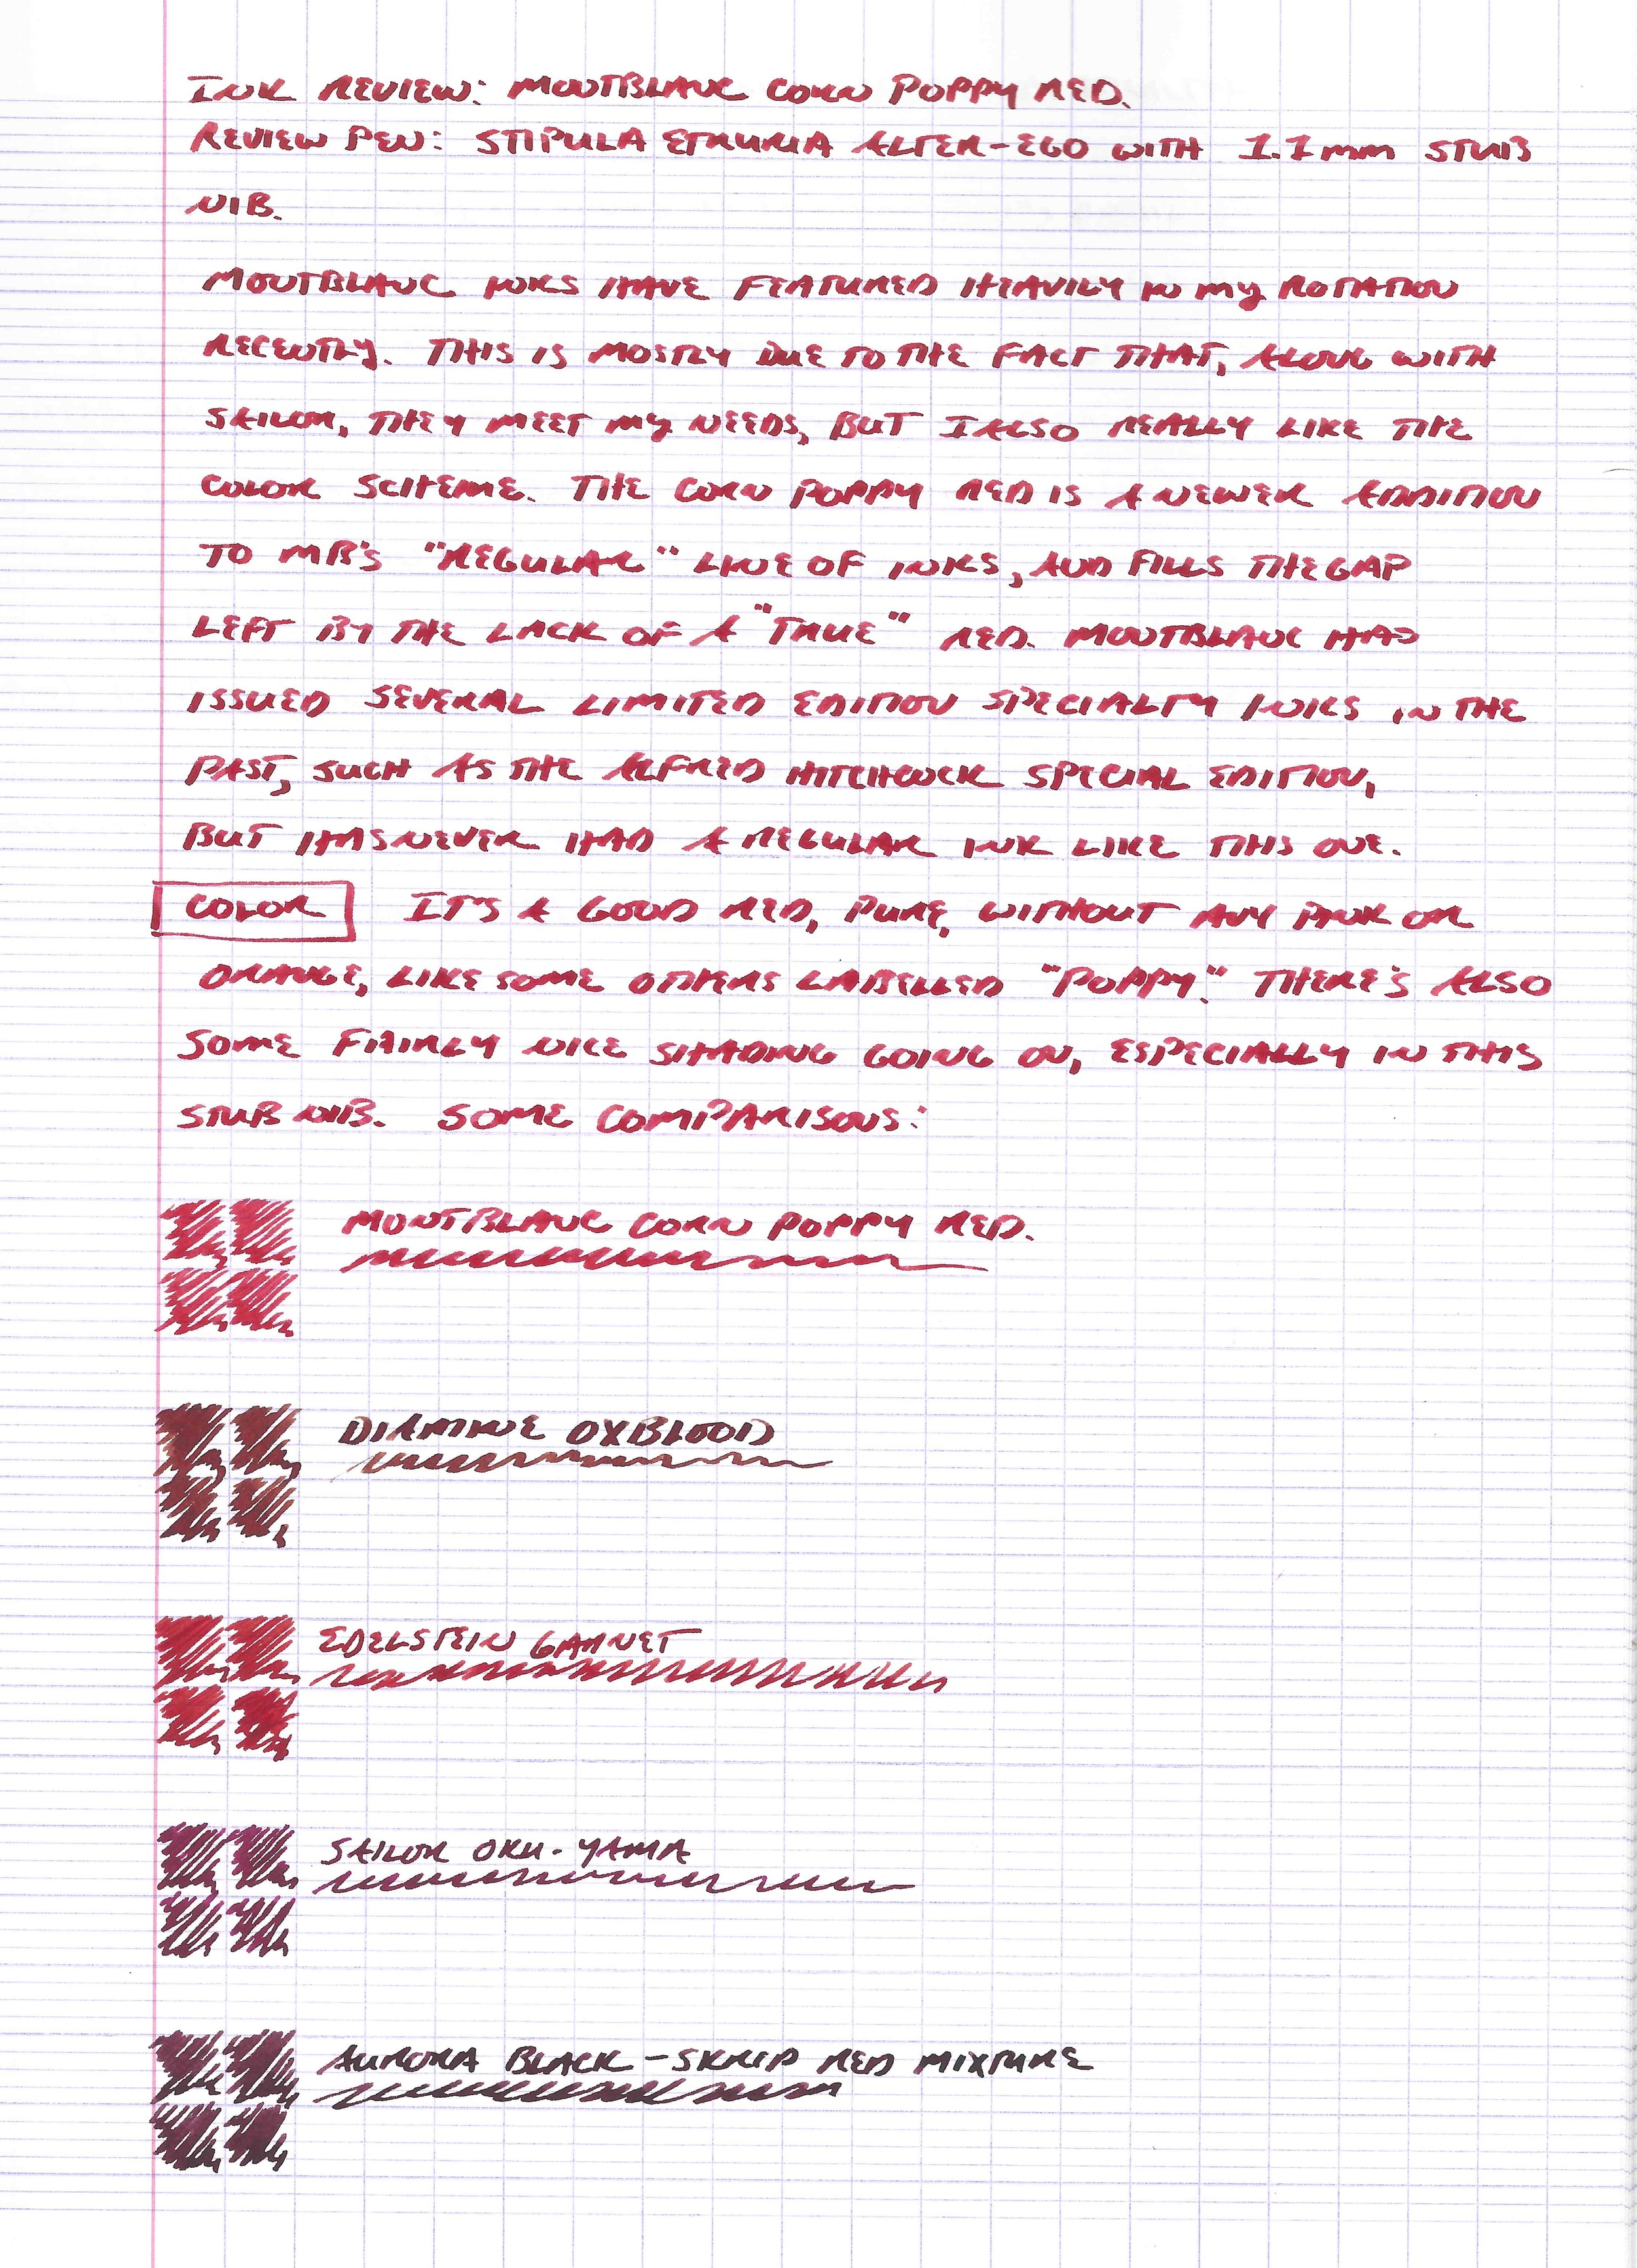 INK REVIEW: MONTBLANC CORN POPPY RED.
REVIEW PEN: STIPULA ETRURIA ALTER-EGO WITH 1.1mm STUB
NIB.
MONTBLANC INKS HAVE FEATURED HEAVILY IN MY ROTATION
RECENTLY. THIS IS MOSTLY DUE TO THE FACT THAT, ALONG WITH
SAILOR, THEY MEET MY NEEDS, BUT I ALSO REALLY LIKE THE
COLOR SCHEME. THE CORN POPPY RED IS A NEWER ADDITION
TO MB'S "REGULAR" LINE OF INKS, AND FILLS THE GAP
LEFT BY THE LACK OF A "TRUE" RED. MONTBLANC HAD
ISSUED SEVERAL LIMITED EDITION SPECIALTY INKS IN THE
PAST, SUCH AS THE ALFRED HITCHCOCK SPECIAL EDITION,
BUT HAS NEVER HAD A REGULAR INK LIKE THIS ONE.
COLOR IT'S A GOOD RED, PURE, WITHOUT ANY PINK OR
ORANGE, LIKE SOME OTHERS LABELLED "POPPY." THERE'S ALSO
SOME FAIRLY NICE SHADING GOING ON, ESPECIALLY IN THIS
STUB NIB. SOME COMPARISONS:
MONTBLANC CORN POPPY RED.
DIAMINE OXBLOOD
EDELSTEIN GARNET
SAILOR OKU-YAMA
AURORA BLACK - SKRIP RED MIXTURE